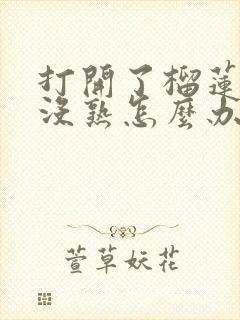 打開了榴蓮
沒熟怎麼办
萱草妖花